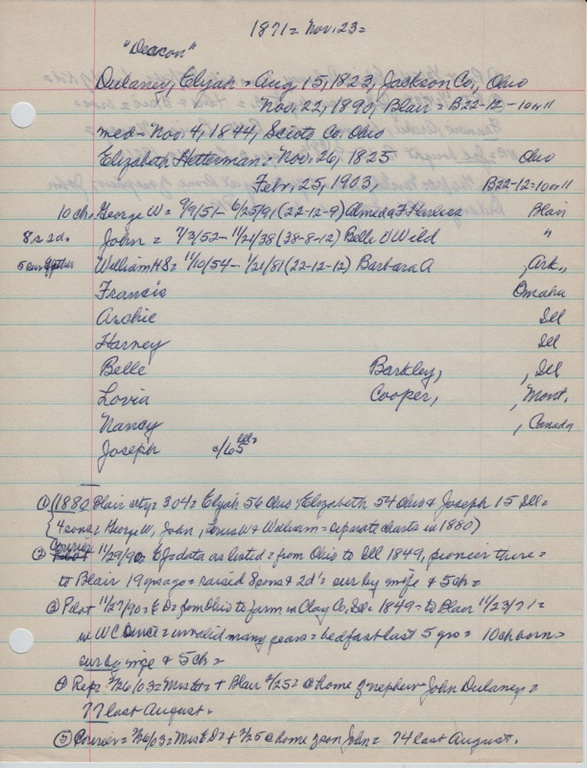 1871 = Nov. 23 =
"Deacon"
Dulaney, Elijah = Aug. 15, 1823, Jackson Co., Ohio
Nov. 22, 1890, Blair = B22-12-10or11
med = Nov. 4, 1844, Scioto Co. Ohio
Elizabeth Hetterman = Nov. 26, 1825 Ohio
Febr. 25, 1903, B22-12=10or11
10 ch = George W = 9/9/51 - 6/25/91 (22-12-9) Almeda F Blair
8s 2d. John = 7/3/52 - 11/21/38 (38-8-12) Belle V Wild "
William HS = 11/10/54 - 1/21/81 (22-12-12) Barbara A , Ark.,
Francis Omaha
Archie Ill
Harney Ill
Belle Barkley, , Ill
Lovia Cooper, , Mont.
Nancy , Canada
Joseph c/65 Ill
(1) (1880 Blair city = 304 = Elijah 56 Ohio Elizabeth 54 Ohio & Joseph 15 Ill =
4 sons = George W, John, & William = separate charts in 1880)
(2) Courier 11/29/90 = EJ data as listed = from Ohio to Ill 1849, pioneer there =
to Blair 19 yrs ago = raised 8 sons & 2 d's sur by wife & 5 ch =
(3) Pilot 11/27/90 = E D = from Ohio to farm in Clay Co. Ill = 1849 = to Blair 11/23/71 =
in W C since = invalid many years = bedfast last 5 yrs = 10 ch born =
sur by wife & 5 ch =
(4) Rep = 2/26/03 = Mrs = + Blair 2/25 = @ home of nephew John Dulaney =
77 last August.
(5) Courier = 2/26/03 = Mrs E D = + 2/25 @ home of son John = 74 last August.